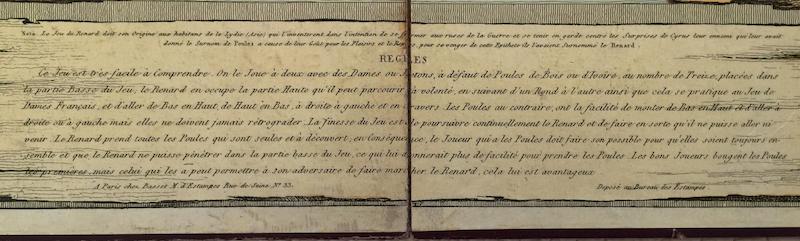 Nota. Le Jeu du Renard doit son Origine aux habitans de la Lydie (Asie) qui l'inventerent dans l'intention de se former aux ruses de la Guerre et se tenir en garde contre les Surprises de Cyrus leur ennemi qui leur avait
donné le Surnom de Poules a cause de leur Goût pour les Plaisirs et le Repos, pour se venger de cette Epithete ils l'avaient Surnommé le Renard.
REGLES
Ce Jeu est très facile à Comprendre. On le Joue à deux avec des Dames ou Jettons, à défaut de Poules de Bois ou d'Ivoire, au nombre de Treize, placées dans
la partie Basse du Jeu, le Renard en occupe la partie Haute qu'il peut parcourir à volonté, en suivant d'un Rond à l'autre ainsi que cela se pratique au Jeu de
Dames Français, et d'aller de Bas en Haut, de Haut en Bas, à droite à gauche et en travers. Les Poules au contraire, ont la facilité de monter de Bas en Haut et d'aller à
droite ou à gauche mais elles ne doivent jamais rétrograder. La finesse du Jeu est de poursuivre continuellement le Renard et de faire en sorte qu'il ne puisse aller ni
venir. Le Renard prend toutes les Poules qui sont seules et à découvert, en Conséquence, le Joueur qui a les Poules doit faire son possible pour qu'elles soient toujours en-
semble et que le Renard ne puisse pénétrer dans la partie basse du Jeu, ce qui lui donnerait plus de facilité pour prendre les Poules. Les bons Joueurs bougent les Poules
les premieres, mais celui qui les a peut permettre à son adversaire de faire marcher le Renard, cela lui est avantageux.
A Paris chez Basset M.d d'Estampes Rue de Seine, N.º 33.
Deposé au Bureau des Estampes